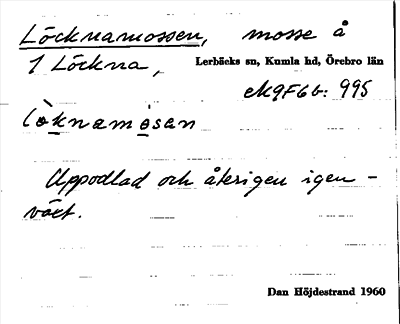 Löcknamossen, mosse å
1 Löckna, Lerbäcks sn, Kumla hd, Örebro län
ek 9F6b: 995
lòknamósan
Uppodlad och återigen igen-
växt.
Dan Höjdestrand 1960